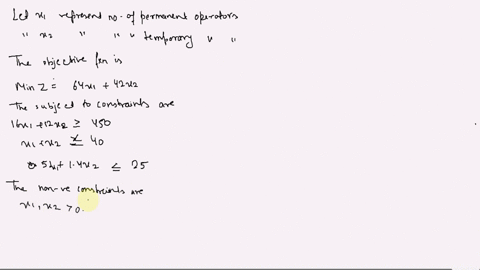 Let x1 represent no. of permanent operators
" x2 " " " temporary " "
The objective fxn is
Min Z = 64x1 + 42x2
The subject to constraints are
16x1 + 12x2 ≥ 450
x1 + x2 ≤ 40
5x1 + 1.4x2 ≤ 25
The non-ve constraints are
x1, x2 > 0.